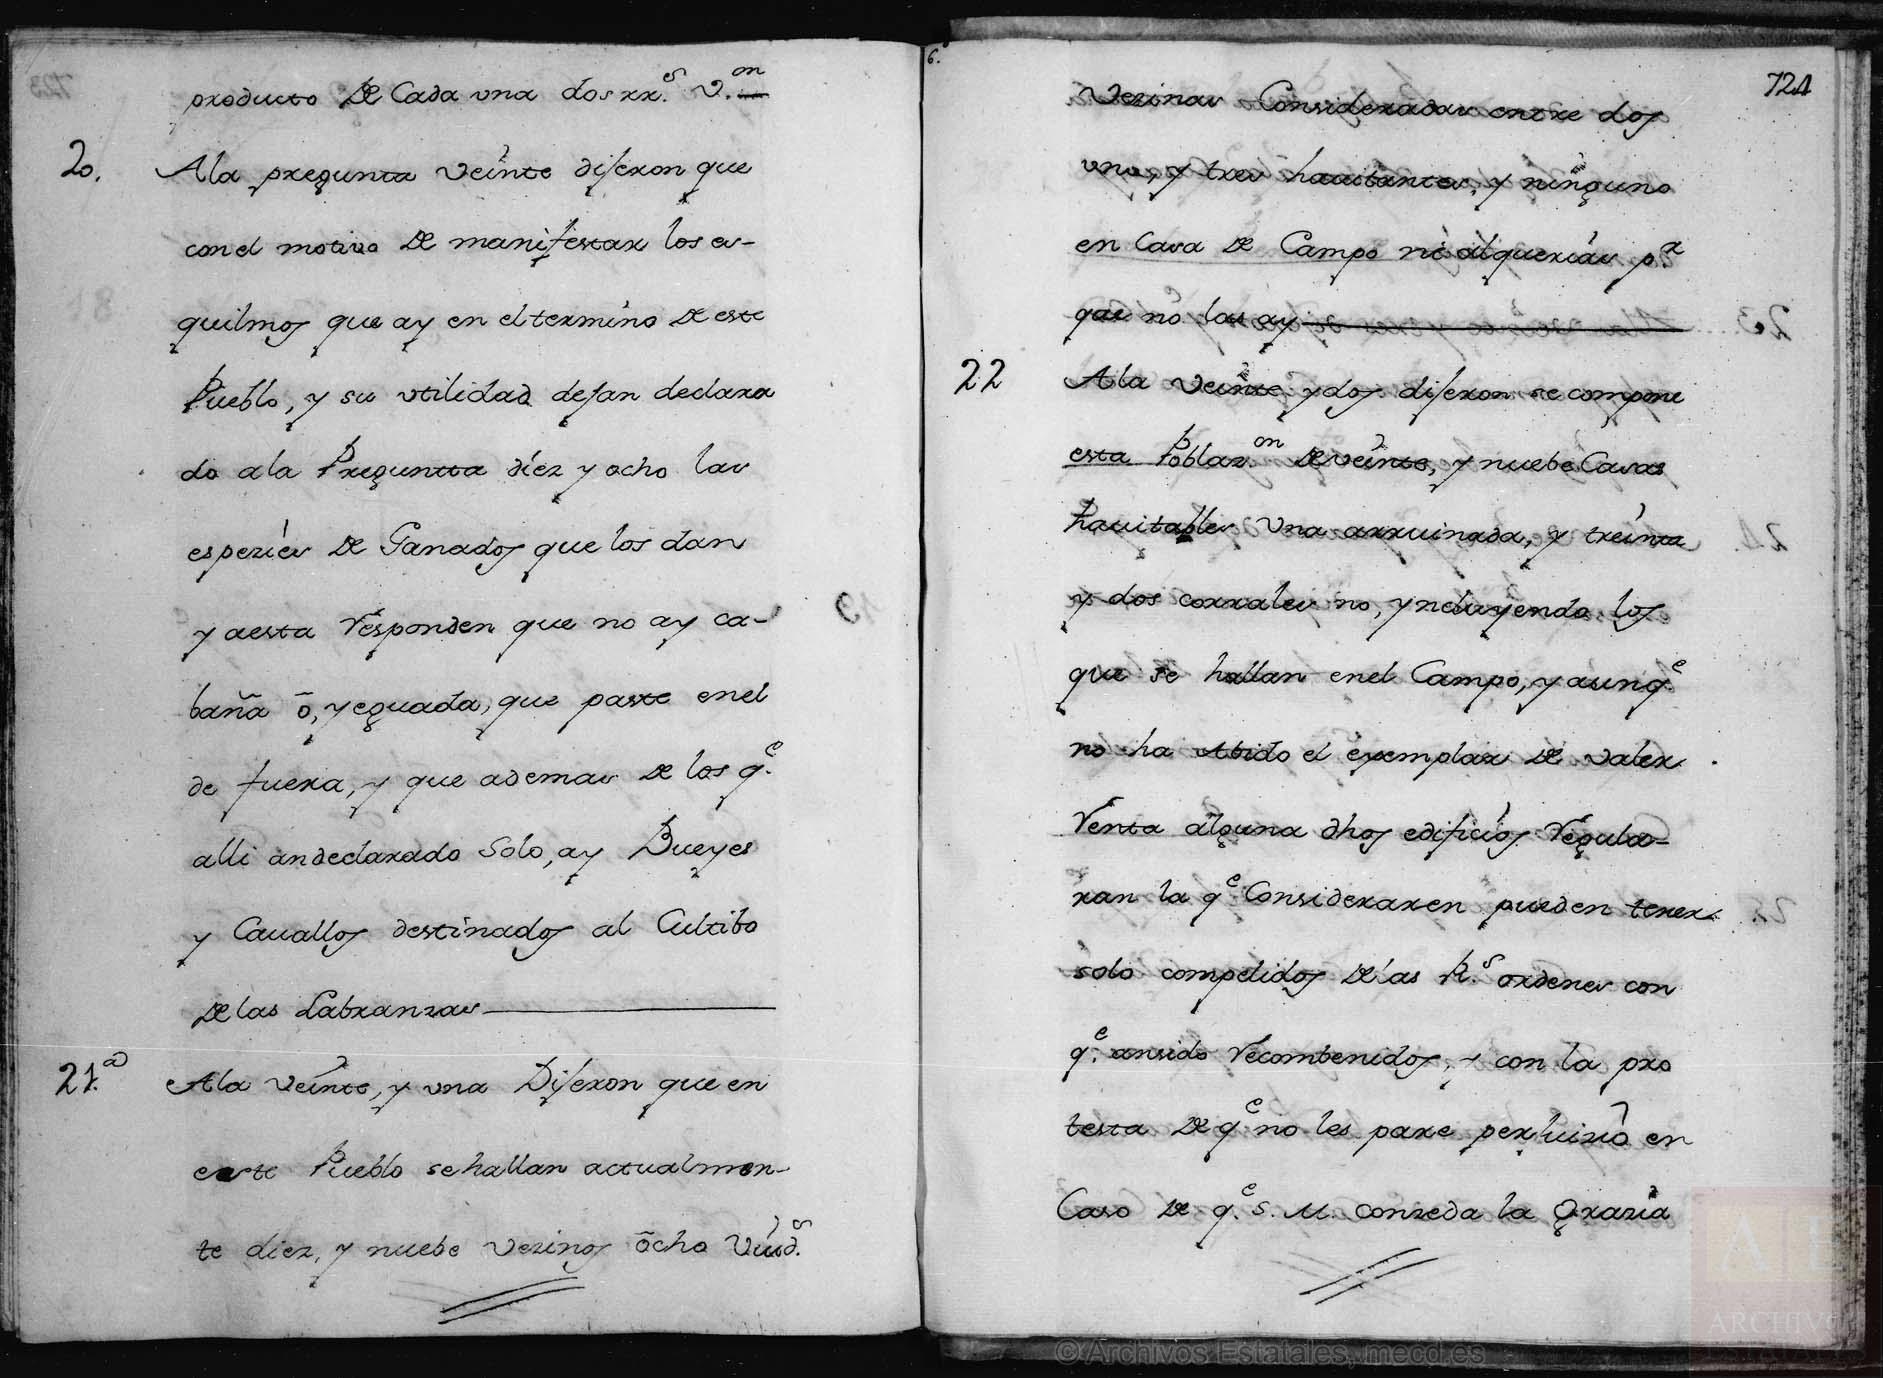 producto De Cada vna dos rr.s V.on
20. Ala pregunta veinte dijeron que
con el motivo De manifestar los es-
quilmos que ay en el termino De este
Pueblo, y su vtilidad dejan declara
do ala Preguntta diez y ocho las
espezies De Ganados que los dan
y aesta Responden que no ay ca-
baña ō, yeguada, que paste enel
de fuera, y que ademas De los q.e
alli andeclarado Solo, ay Bueyes
y Cauallos destinados al Cultibo
De las Labranzas
21.a Ala veinte, y vna Dijeron que en
este Pueblo se hallan actualmen-
te diez, y nuebe vezinos ōcho Viud.s
6.
724
Vezinas Consideradas entre dos
vno, y tres hauitantes, y ninguno
en Casa De Campo ni alquerias p.r
que no las ay
22 Ala veinte y dos dijeron se compone
esta Poblaz.on De veinte, y nuebe Casas
hauitables Vna arruinada, y treinta
y dos corrales no, yncluyendo los
que se hallan enel Campo, y aunq.e
no ha abido el exemplar De valer
Venta alguna dhos edificios Regula-
ran la q.e Consideraren pueden tener
solo compelidos De las R.s ordenes con
q.e ansido Recombenidos, y con la pro
testa De q.e no les pare perhuizio en
Caso De q.e S. M. conzeda la Grazia
© Archivos Estatales, mecd.es
AE
ARCHIVOS
ESTATALES